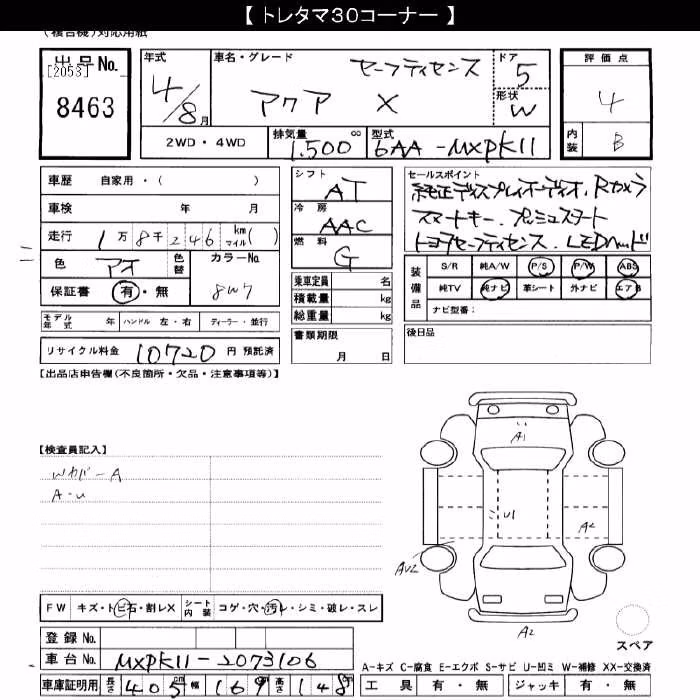 【 トレタマ30コーナー 】
(複合機)対応用紙
出品No.
[2053]
8463
年式
4/8月
車名・グレード
セーフティセンス
アクア X
ドア
5
形状
W
評価点
4
内装
B
2WD・4WD
排気量
1.500 cc
型式
6AA-MXPK11
車歴 自家用・( )
車検 年 月
走行 1万8千246 km マイル( )
色 アオ 色替 カラーNo 8W7
保証書 有・無
モデル年式 年 ハンドル 左・右 ディーラー・並行
リサイクル料金 10720 円 預託済
シフト AT
冷房 AAC
燃料 G
乗車定員 名
積載量 kg
総重量 kg
書類期限
月 日
セールスポイント
純正ディスプレイオーディオ、Rカメラ
スマートキー、プッシュスタート
トヨタセーフティセンス、LEDヘッド
装備品
S/R 純A/W P/S P/W ABS
純TV 純ナビ 革シート 外ナビ エアB
ナビ型番:
後日品
【出品店申告欄(不良箇所・欠品・注意事項等)】
【検査員記入】
A-u
A1
U1
A2
AU2
A2
スペア
FW キズ・トビ石・割レX シート内装 コゲ・穴・汚レ・シミ・破レ・スレ
登録No.
車台No. MXPK11-2073106
車庫証明用 長さ 405cm 幅 169cm 高さ 148cm
A-キズ C-腐食 E-エクボ S-サビ U-凹ミ W-補修 XX-交換済
工具 有・無 ジャッキ 有・無